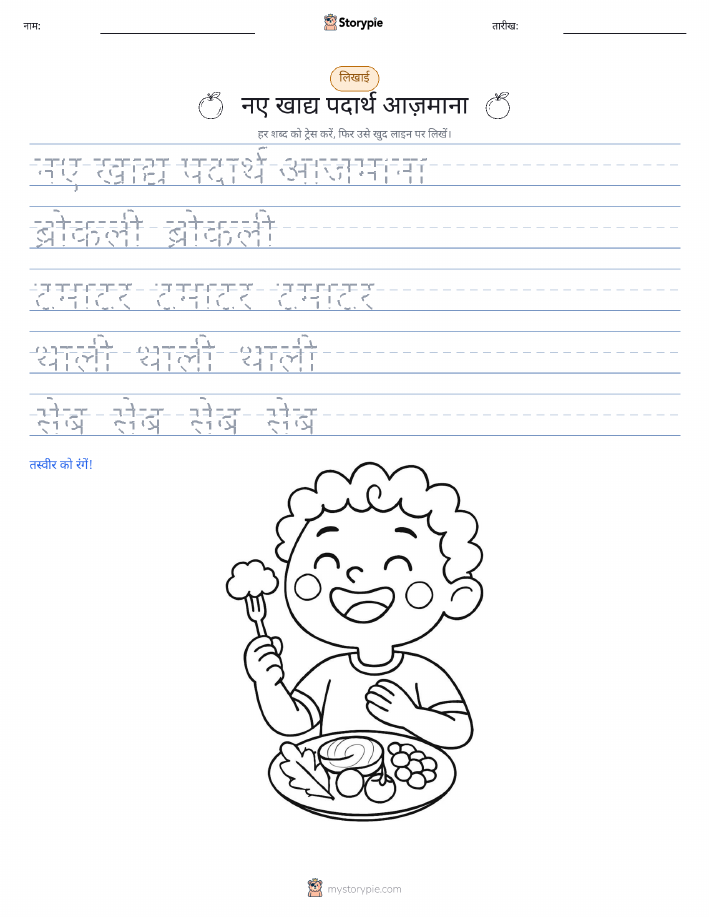 नाम:
Storypie
तारीख:
लिखाई
नए खाद्य पदार्थ आज़माना
हर शब्द को ट्रेस करें, फिर उसे खुद लाइन पर लिखें।
नए खाद्य पदार्थ आज़माना
ब्रोकली ब्रोकली
टमाटर टमाटर टमाटर
थाली थाली थाली
सेब सेब सेब सेब
तस्वीर को रंगें!
mystorypie.com